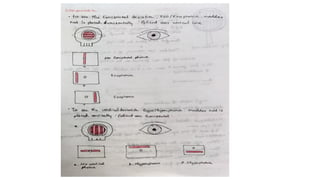 • To see the horizontal deviation, Eso/Exophoria, maddox
rod is placed horizontally. Patient sees vertical line.
No horizontal phoria
Esophoria
Exophoria
• To see the vertical deviation Hyper/Hypophoria maddox rod is
placed vertically. Patient sees horizontal
No vertical
phoria
R. Hyperphoria